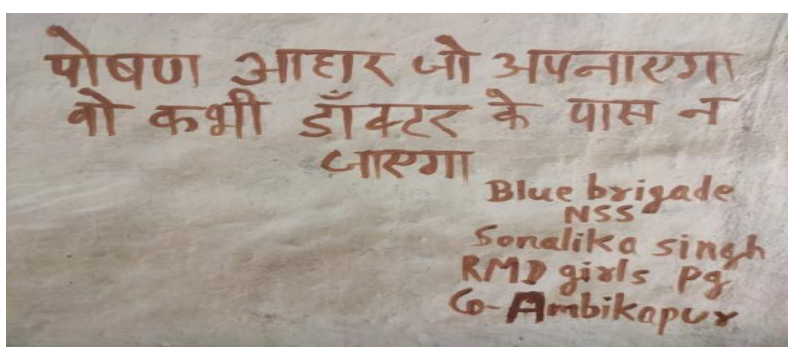 पोषण आहार जो अपनाएगा
वो कभी डॉक्टर के पास न
जाएगा
Blue brigade
NSS
Sonalika singh
RMD girls Pg
Co-Ambikapur